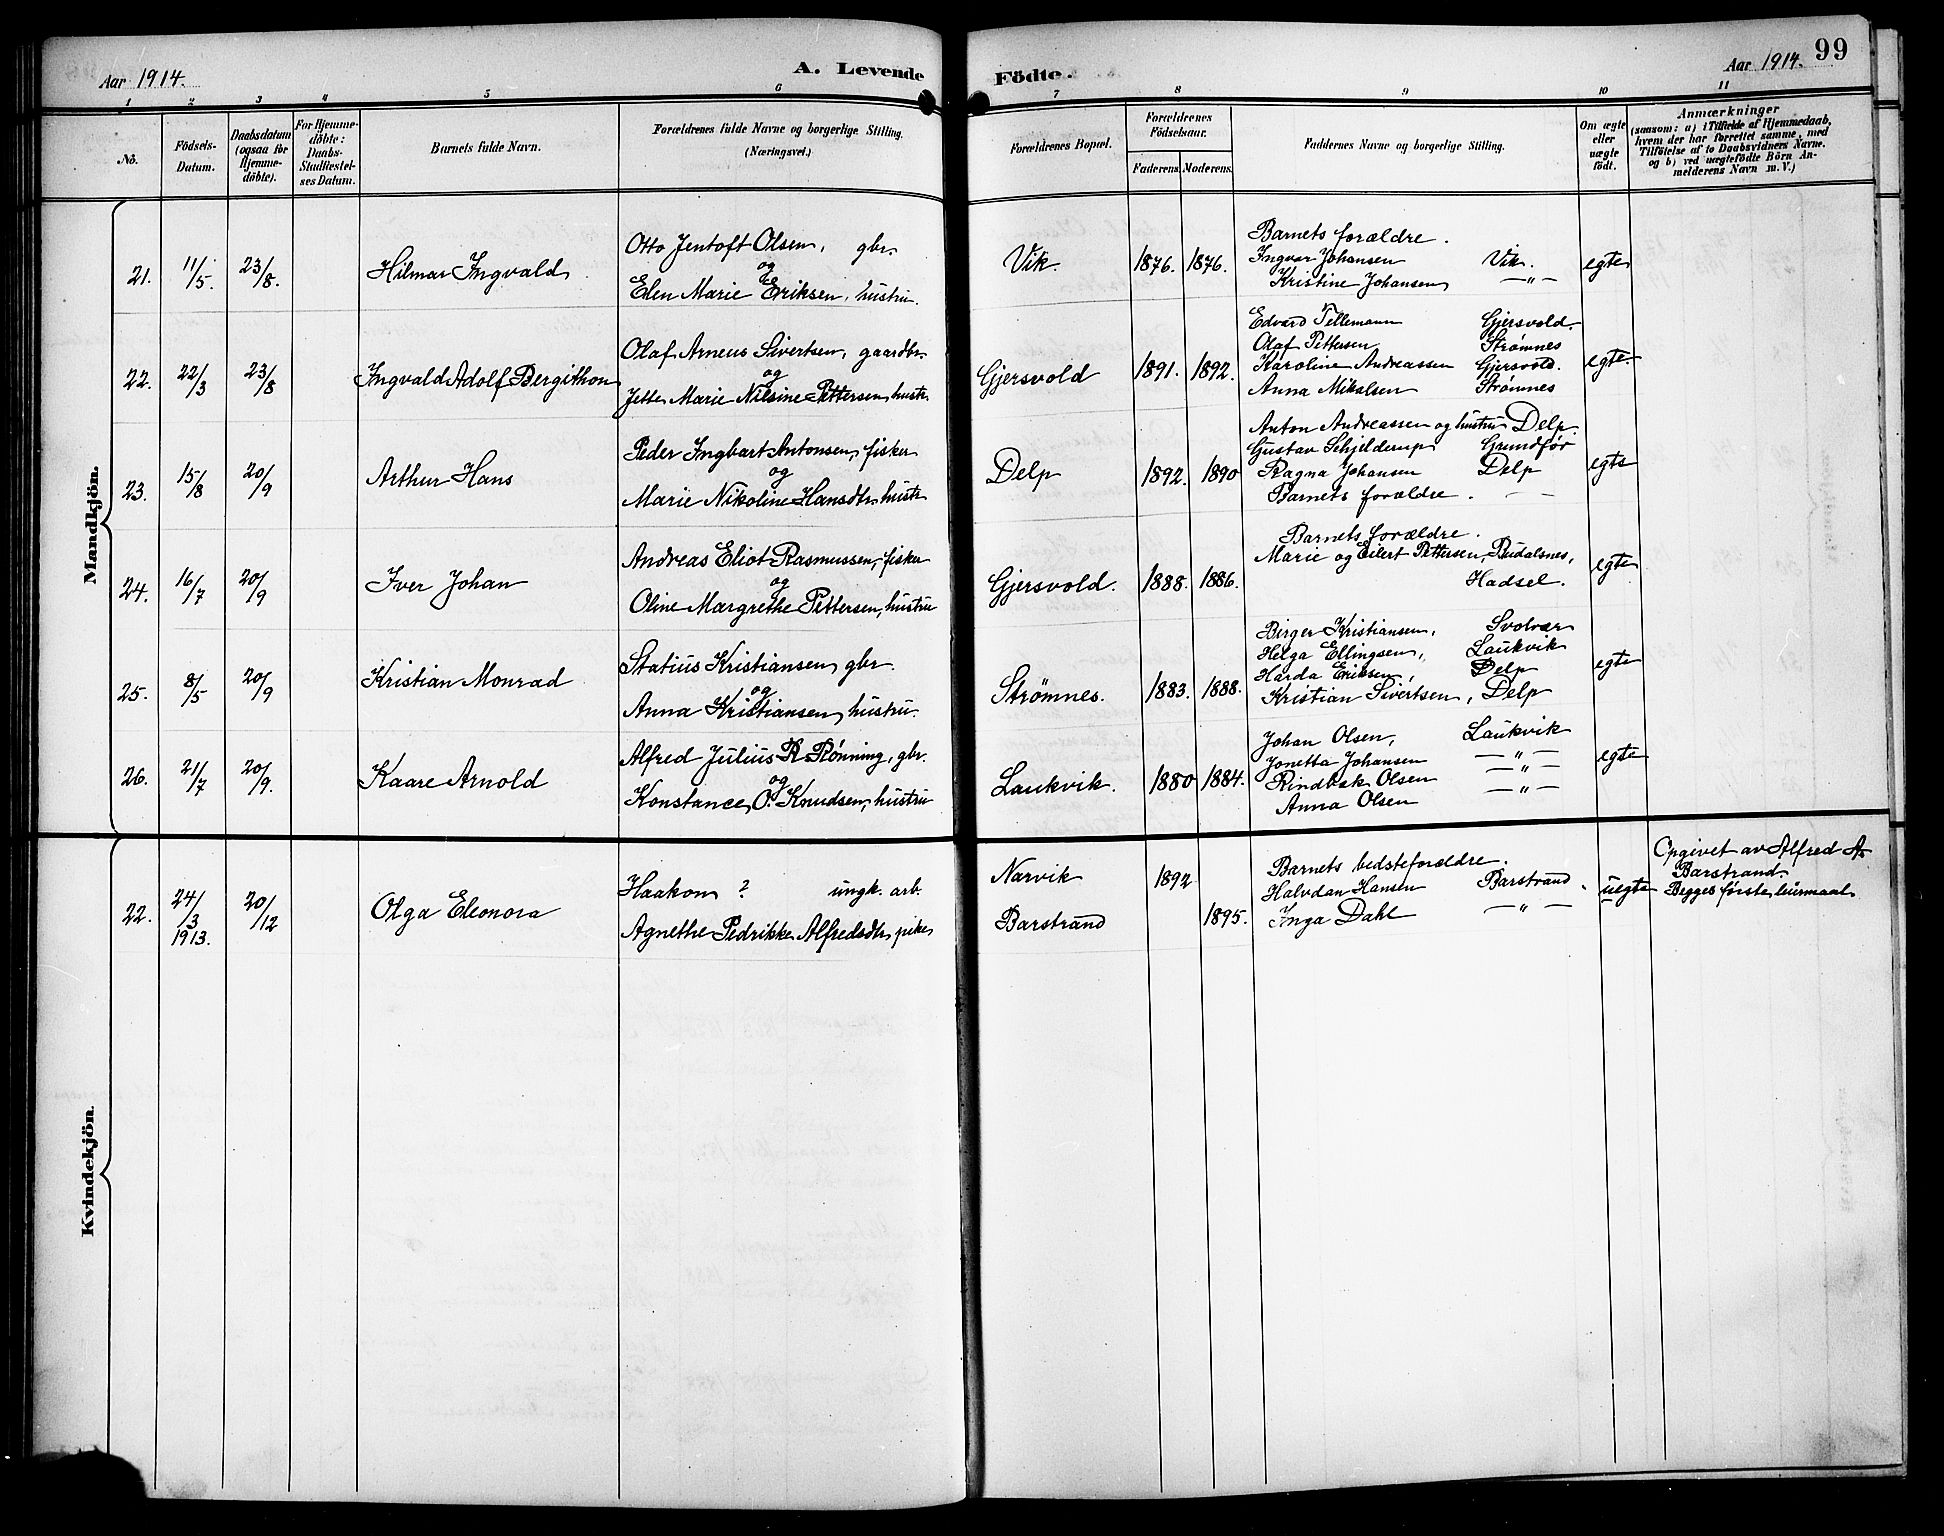 Aar 1914.
A. Levende
Födte.
Aar 1914.
99
1 2 3 4 5 6 7 8 9 10 11
No.
Födsels-
Datum.
Daabsdatum
(ogsaa for
Hjemme-
döbte).
For Hjemme-
döbte:
Daabs-
Stadfæstel-
ses Datum.
Barnets fulde Navn.
Forældrenes fulde Navne og borgerlige Stilling.
(Næringsvei.)
Forældrenes Bopæl.
Forældrenes
Födselsaar.
Faderens. Moderens.
Faddernes Navne og borgerlige Stilling.
Om ægte
eller
uægte
födt.
Anmærkninger
(saasom: a) i Tilfælde af Hjemmedaab,
hvem der har forrettet samme, med
Tilföielse af to Daabsvidners Navne.
og b) ved uægtefödte Börn An-
melderens Navn m. V.)
Mandkjön.
21. 11/5. 23/8. Hilmar Ingvald
Otto Jentoft Olsen, gbr.
og
Elen Marie Eriksen, hustru.
Vik. 1876. 1876.
Barnets forældre.
Ingvar Johansen Vik.
Kristine Johansen —"—
egte
22. 22/3 23/8 Ingvald Adolf Bergithon
Olaf Arneus Sivertsen, gaardbr.
og
Jette Marie Nilsine Pettersen hustr.
Gjersvold 1891. 1892.
Edvard Tellemann Gjersvold.
Olaf Pettersen, Strømnes
Karoline Andreassen Gjersvold.
Anna Mikalsen Strømnes
egte
23. 15/8 20/9 Arthur Hans
Peder Ingbart Antonsen, fisker
og
Marie Nikoline Hansdtr. hustr
Delp 1892. 1890
Anton Andreassen og hustru Delp.
Gustav Schjelderup Grundfør
Ragna Johansen Delp
Barnets forældre. —
egte
24. 16/7 20/9 Iver Johan
Andreas Eliot Rasmussen, fisker
og
Oline Margrethe Pettersen, hustru
Gjersvold. 1888. 1886.
Barnets forældre.
Marie og Eilert Pettersen, Budalsnes,
Hadsel.
egte
25. 8/5 20/9 Kristian Monrad
Statius Kristiansen gbr.
og
Anna Kristiansen, hustru.
Strømnes. 1883. 1888.
Birger Kristiansen, Svolvær
Helga Ellingsen, Laukvik
Harda Eriksen, Delp
Kristian Sivertsen, Delp
egte
26. 21/7 20/9. Kaare Arnold
Alfred Julius R Rønning, gbr.
og
Konstance O. Knudsen, hustru
Laukvik. 1880 1884.
Johan Olsen, Laukvik
Jonetta Johansen —"—
Rindbek Olsen —"—
Anna Olsen —"—
egte
Kvindekjön.
22. 24/3 1913. 20/12 Olga Eleonora
Haakon ? ungk. arb.
Agnethe Pedrikke Alfredsdtr, pike
Narvik 1892
Barstrand 1895.
Barnets bedsteforældre.
Halvdan Hansen Barstrand.
Inga Dahl —"—
uegte
Opgivet av Alfred A.
Barstrand.
Begges første leiermaal